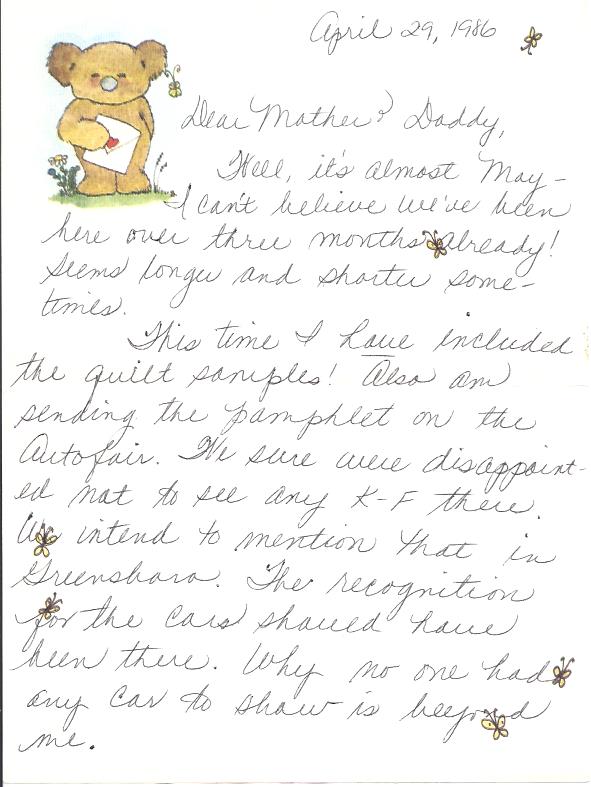 April 29, 1986
Dear Mother & Daddy,
Well, it's almost May –
I can't believe we've been
here over three months already!
Seems longer and shorter some-
times.
This time I have included
the quilt samples! Also am
sending the pamphlet on the
Autofair. We sure were disappoint-
ed not to see any K-F there.
We intend to mention that in
Greensboro. The recognition
for the cars should have
been there. Why no one had
any car to show is beyond
me.